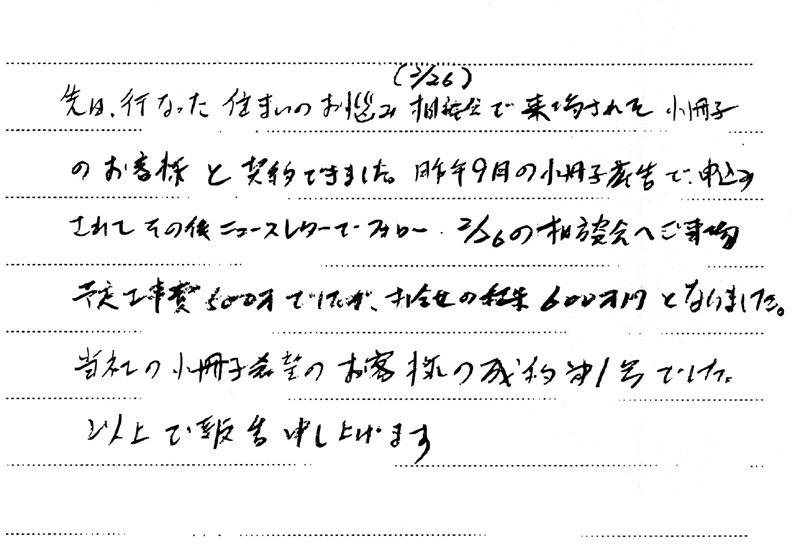 (2/26)
先日、行なった住まいのお悩み相談会で来場された小冊子
のお客様と契約できました。昨年9月の小冊子広告で、申込み
されてその後ニュースレターでフォロー。2/26の相談会へご来場
予定工事費500万でしたが、打合せの結果600万円となりました。
当社の小冊子希望のお客様の成約第1号でした。
以上ご報告申し上げます